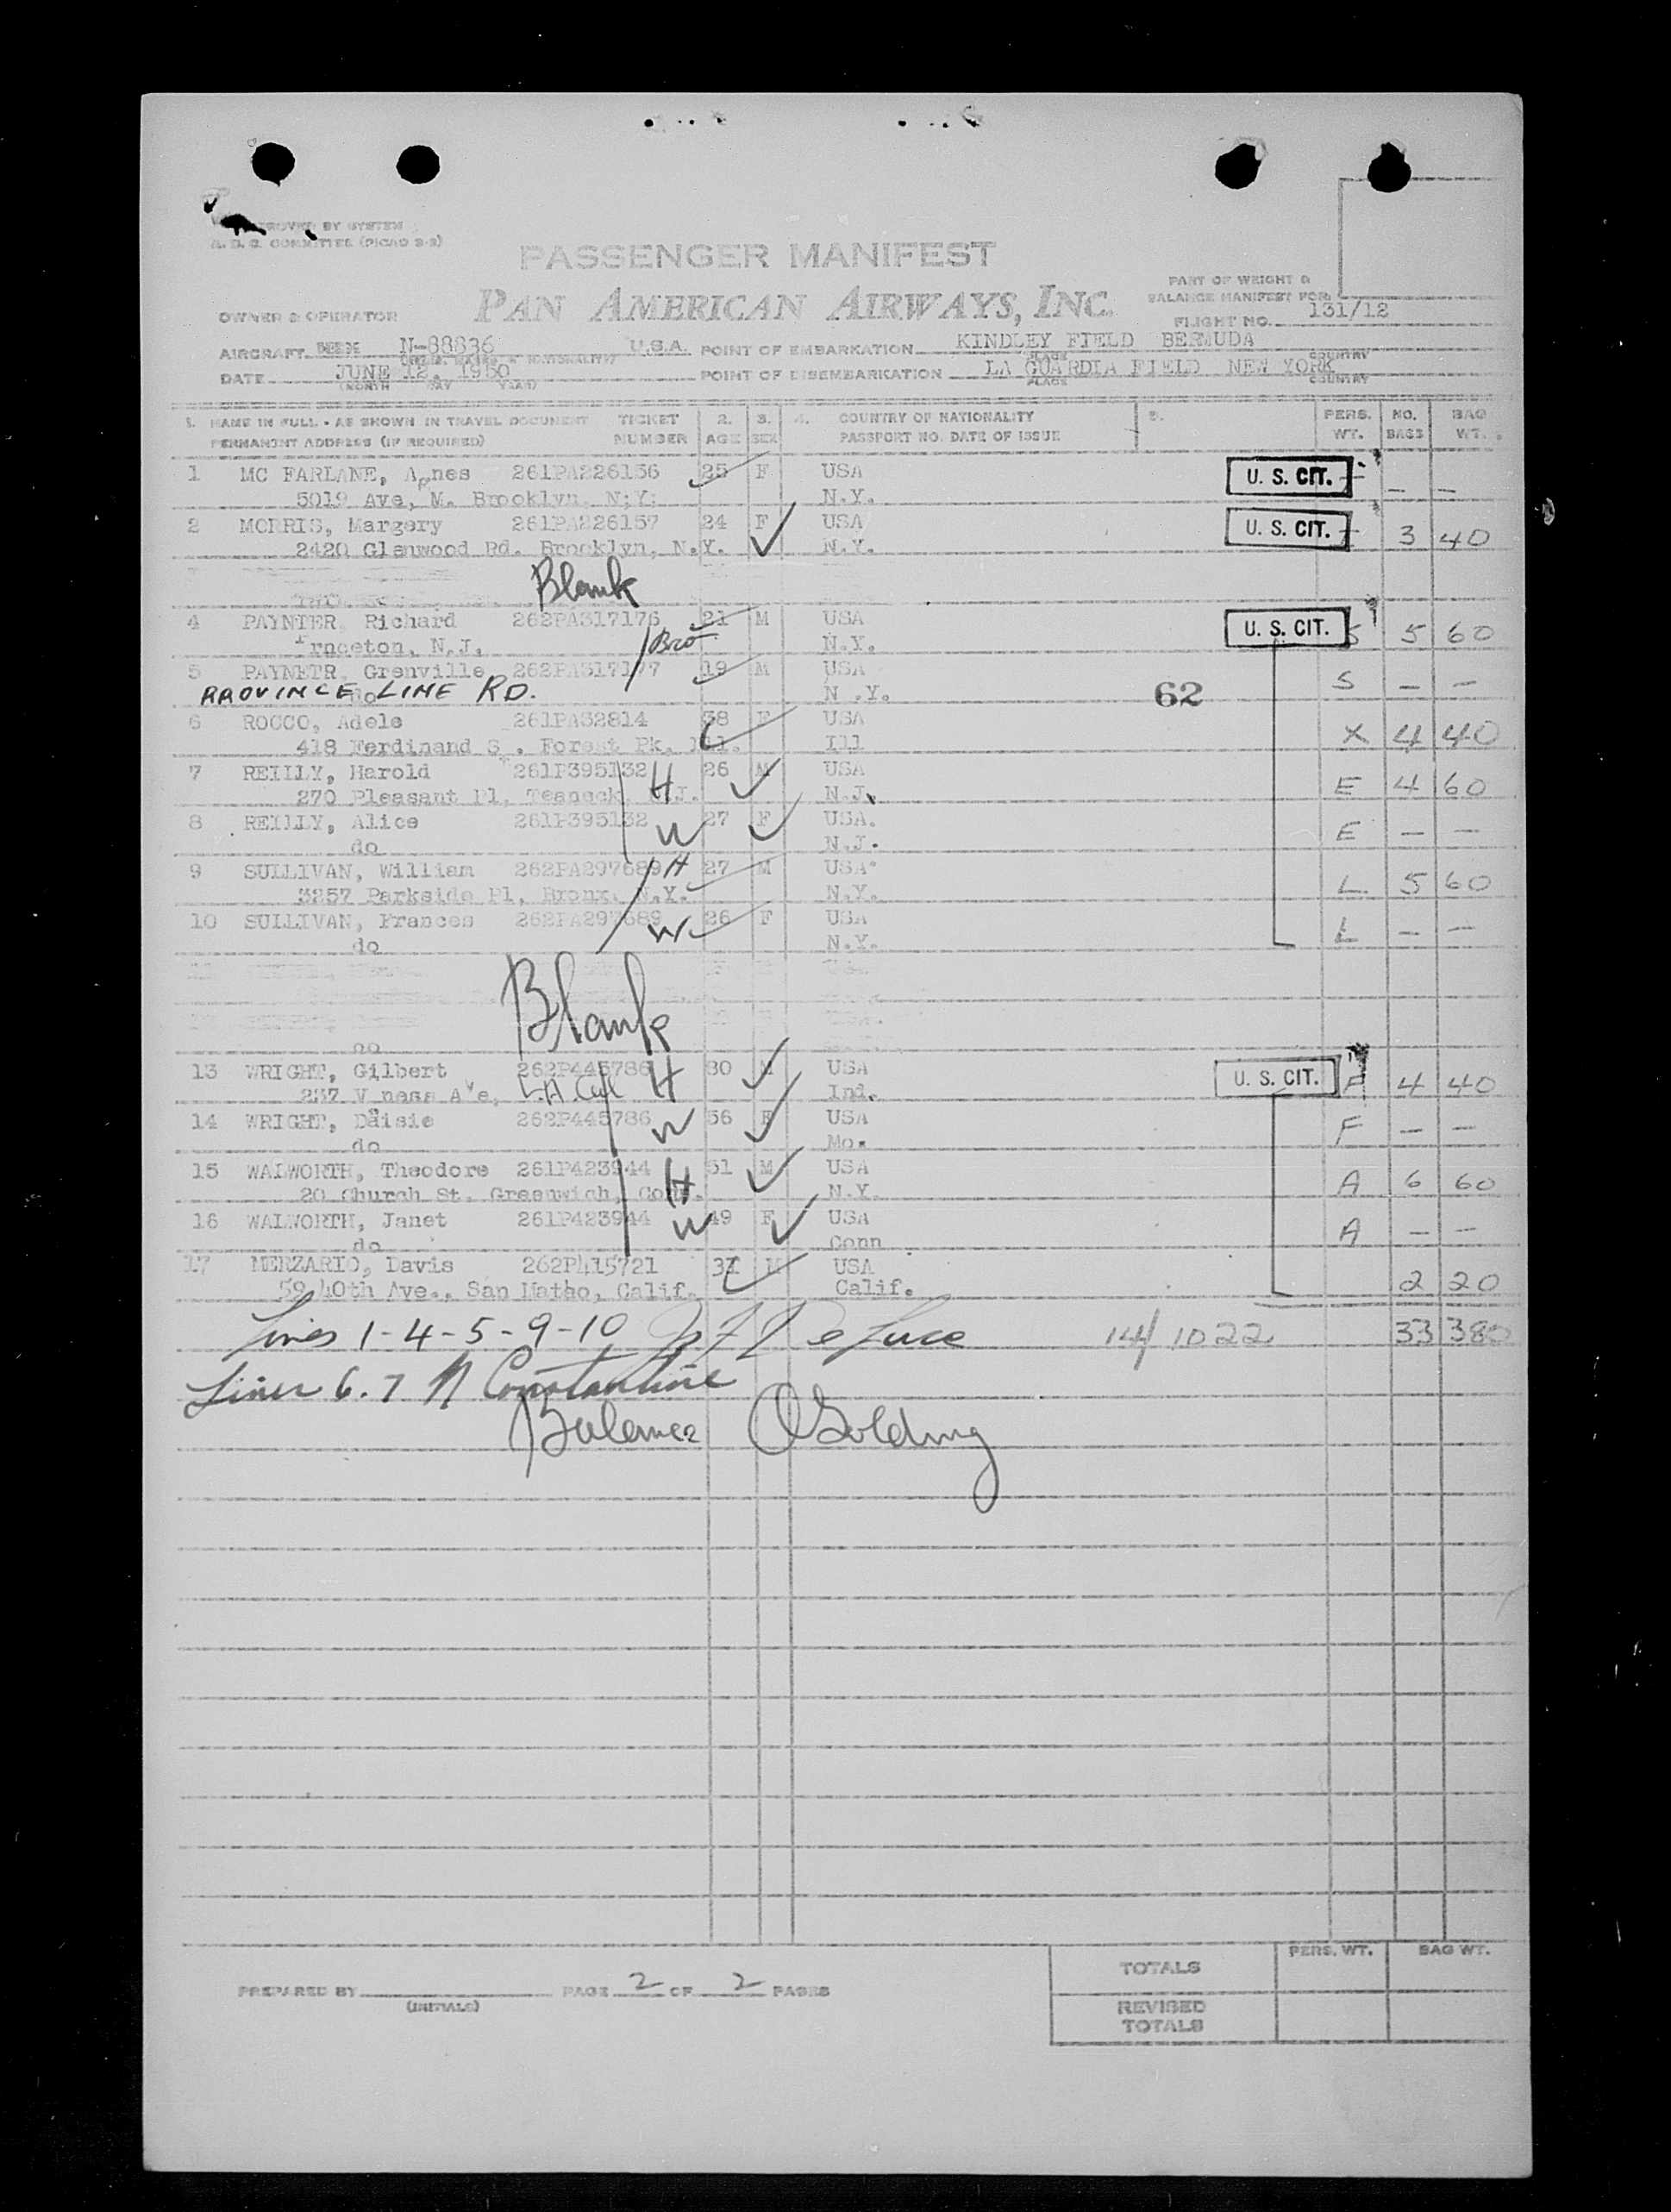 APPROVED BY SYSTEM
COMMITTEE (PICAO 2-2)
PASSENGER MANIFEST
PAN AMERICAN AIRWAYS, INC.
PART OF WEIGHT &
BALANCE MANIFEST FOR
OWNER & OPERATOR
FLIGHT NO. 131/12
AIRCRAFT N-88836 U.S.A. POINT OF EMBARKATION KINDLEY FIELD BERMUDA
PLACE COUNTRY
DATE JUNE 12, 1950 POINT OF DISEMBARKATION LA GUARDIA FIELD NEW YORK
(MONTH DAY YEAR) PLACE COUNTRY
1. NAME IN FULL - AS SHOWN IN TRAVEL DOCUMENT TICKET 2. 3. 4. COUNTRY OF NATIONALITY 5. PERS. NO. BAG
PERMANENT ADDRESS (IF REQUIRED) NUMBER AGE SEX PASSPORT NO. DATE OF ISSUE WT. BAGS WT.
1 MC FARLANE, Agnes 261PA226156 25 F USA U. S. CIT. — —
5019 Ave, M. Brooklyn, N.Y. N.Y.
2 MORRIS, Margery 261PA226157 24 F USA U. S. CIT. 3 40
2420 Glenwood Rd. Brooklyn, N.Y. N.Y.
Blank
4 PAYNTER, Richard 262PA317176 21 M USA U. S. CIT. S 5 60
Prnceton, N.J. Bro N.Y.
5 PAYNETR, Grenville 262PA317177 19 M USA S — —
PROVINCE LINE RD. do N.Y. 62
6 ROCCO, Adele 261PA32814 38 F USA X 4 40
418 Ferdinand S . Forest Pk, Ill. Ill
7 REILLY, Harold 261P395132 H 26 M USA E 4 60
270 Pleasant Pl, Teaneck, N.J. N.J.
8 REILLY, Alice 261P395132 W 27 F USA. E — —
do N.J.
9 SULLIVAN, William 262PA297689 H 27 M USA L 5 60
3257 Parkside Pl, Bronx, N.Y. N.Y.
10 SULLIVAN, Frances 262PA297689 W 26 F USA L — —
do N.Y.
Blank
do
13 WRIGHT, Gilbert 262P445786 H 80 M USA U. S. CIT. F 4 40
237 V ness A've, L.A. Cal Ind.
14 WRIGHT, Daisie 262P445786 W 56 F USA F — —
do Mo.
15 WALWORTH, Theodore 261P423944 H 51 M USA A 6 60
20 Church St. Greenwich, Conn. N.Y.
16 WALWORTH, Janet 261P423944 W 49 F USA A — —
do Conn
17 MERZARIO, Davis 262P415721 31 M USA
59 40th Ave., San Matho, Calif. Calif. 2 20
Lines 1-4-5-9-10 De Luce 14/1022 33 380
Lines 6.7 N Constantine
Balance O Golding
PREPARED BY PAGE 2 OF 2 PAGES
(INITIALS)
PERS. WT. BAG WT.
TOTALS
REVISED
TOTALS